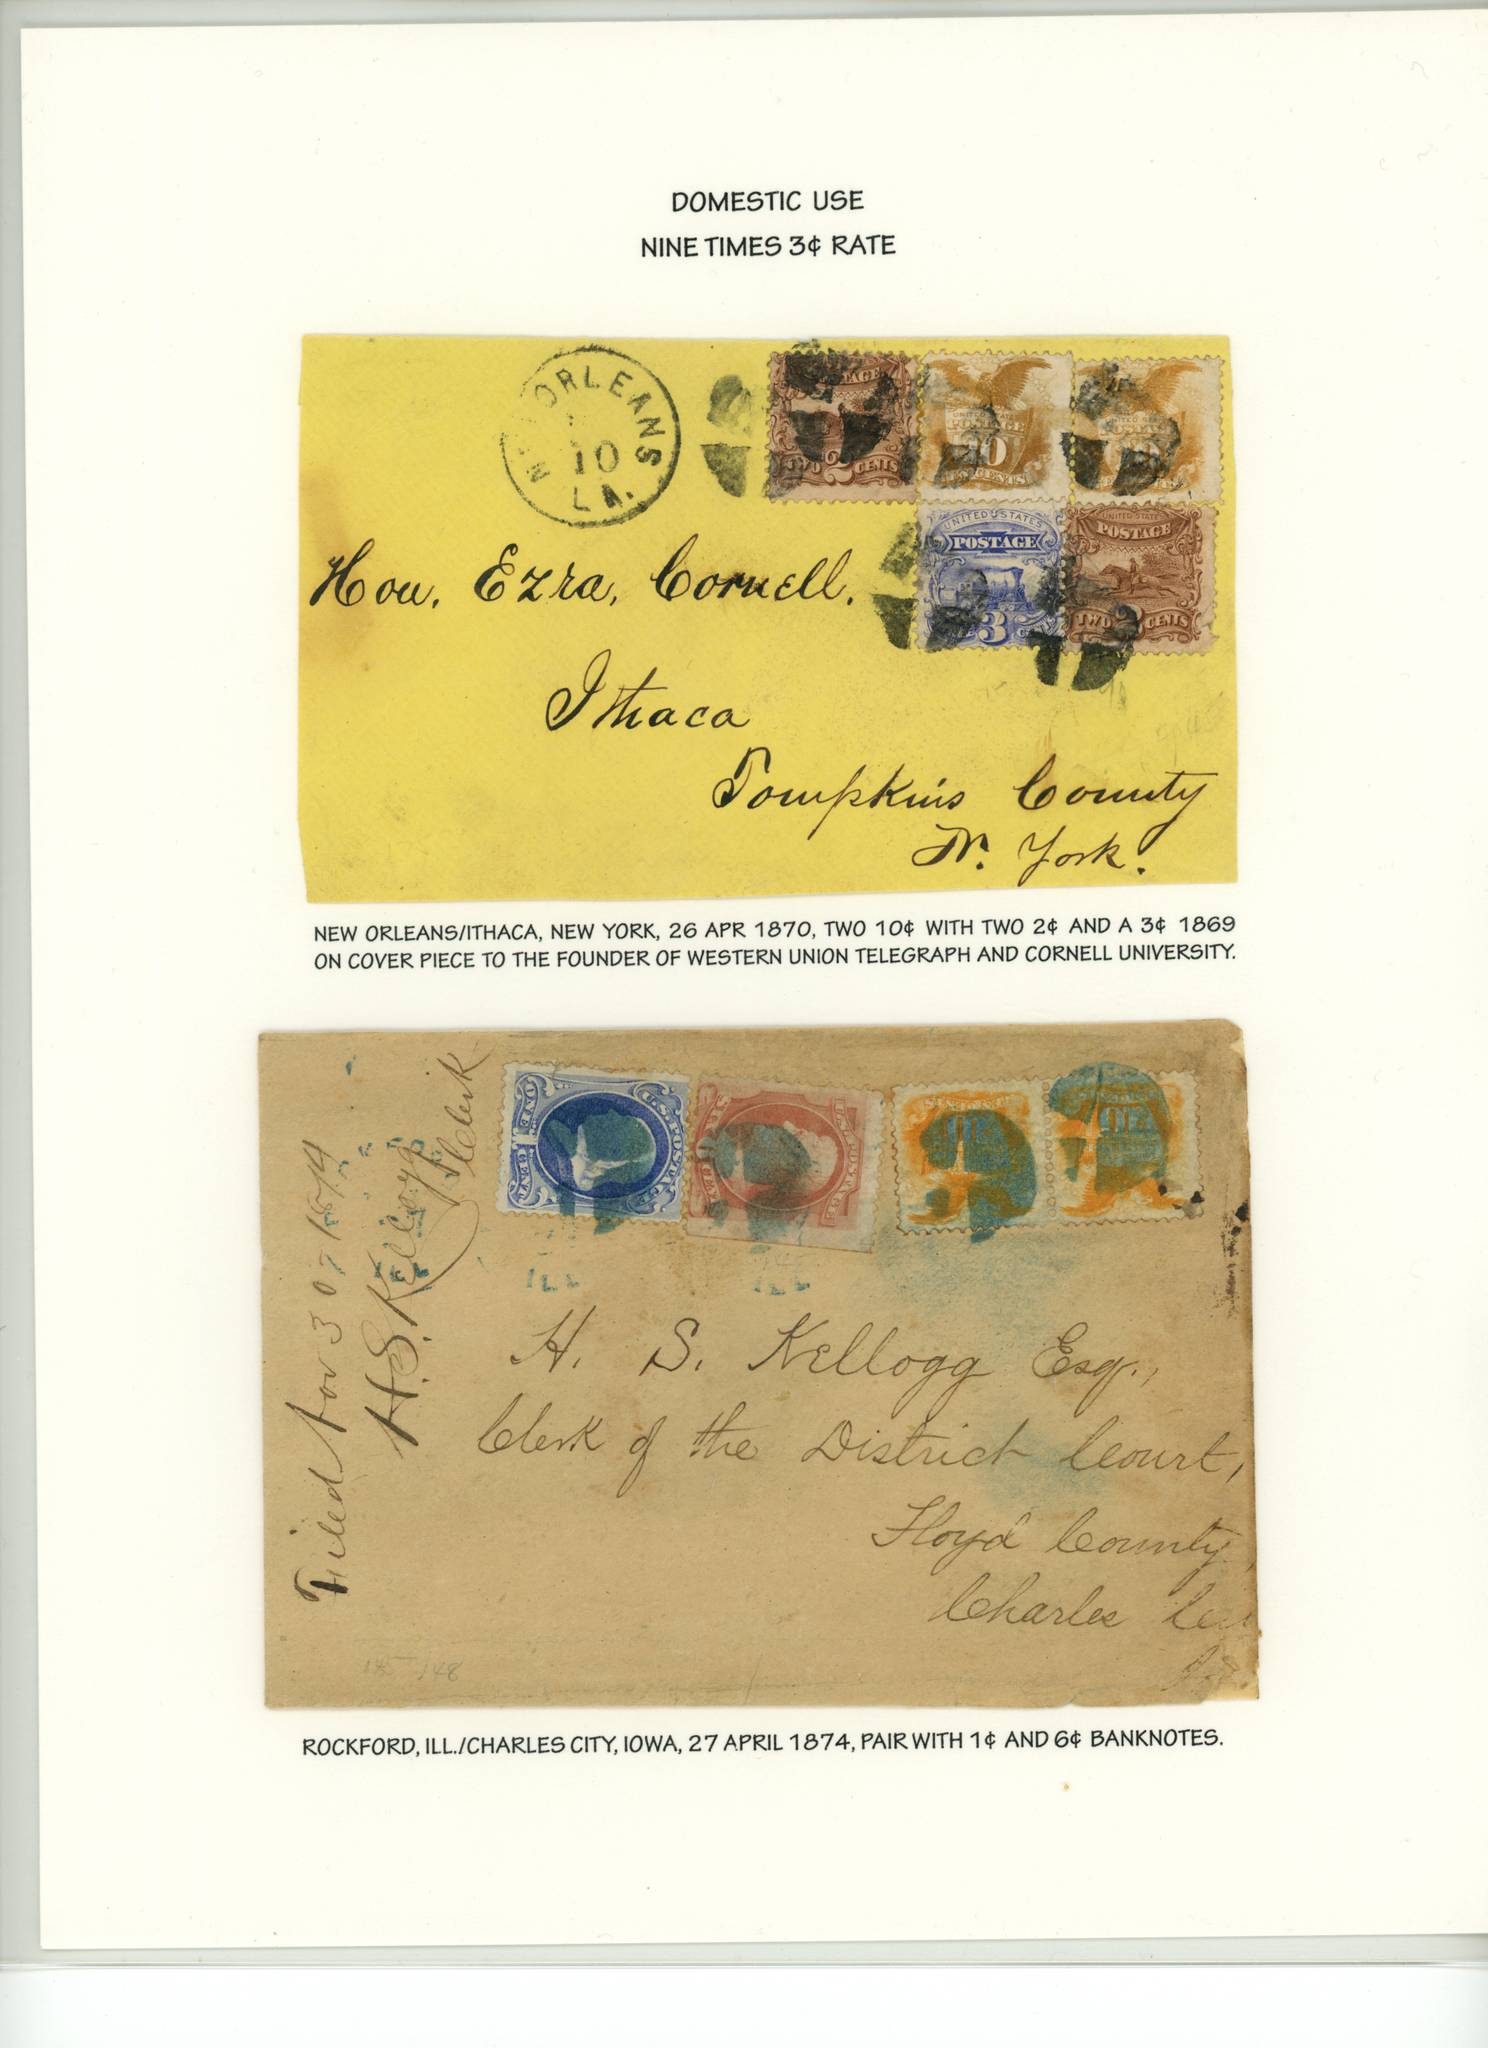 DOMESTIC USE
NINE TIMES 3¢ RATE
ORLEANS
10
LA.
POSTAGE
TWO 2 CENTS
UNITED STATES
POSTAGE
10
UNITED STATES
POSTAGE
3
UNITED STATES
POSTAGE
TWO 2 CENTS
Hon. Ezra, Cornell.
Ithaca
Tompkins County
N. York.
NEW ORLEANS/ITHACA, NEW YORK, 26 APR 1870, TWO 10¢ WITH TWO 2¢ AND A 3¢ 1869
ON COVER PIECE TO THE FOUNDER OF WESTERN UNION TELEGRAPH AND CORNELL UNIVERSITY.
Filed Nov 30 1874
H.S. Kellogg
Clerk
U.S. POSTAGE
ONE 1 CENT
U.S. POSTAGE
10
ILL
ILL
ILL
H. S. Kellogg Esq.,
Clerk of the District Court,
Floyd County
Charles
145 148
ROCKFORD, ILL./CHARLES CITY, IOWA, 27 APRIL 1874, PAIR WITH 1¢ AND 6¢ BANKNOTES.